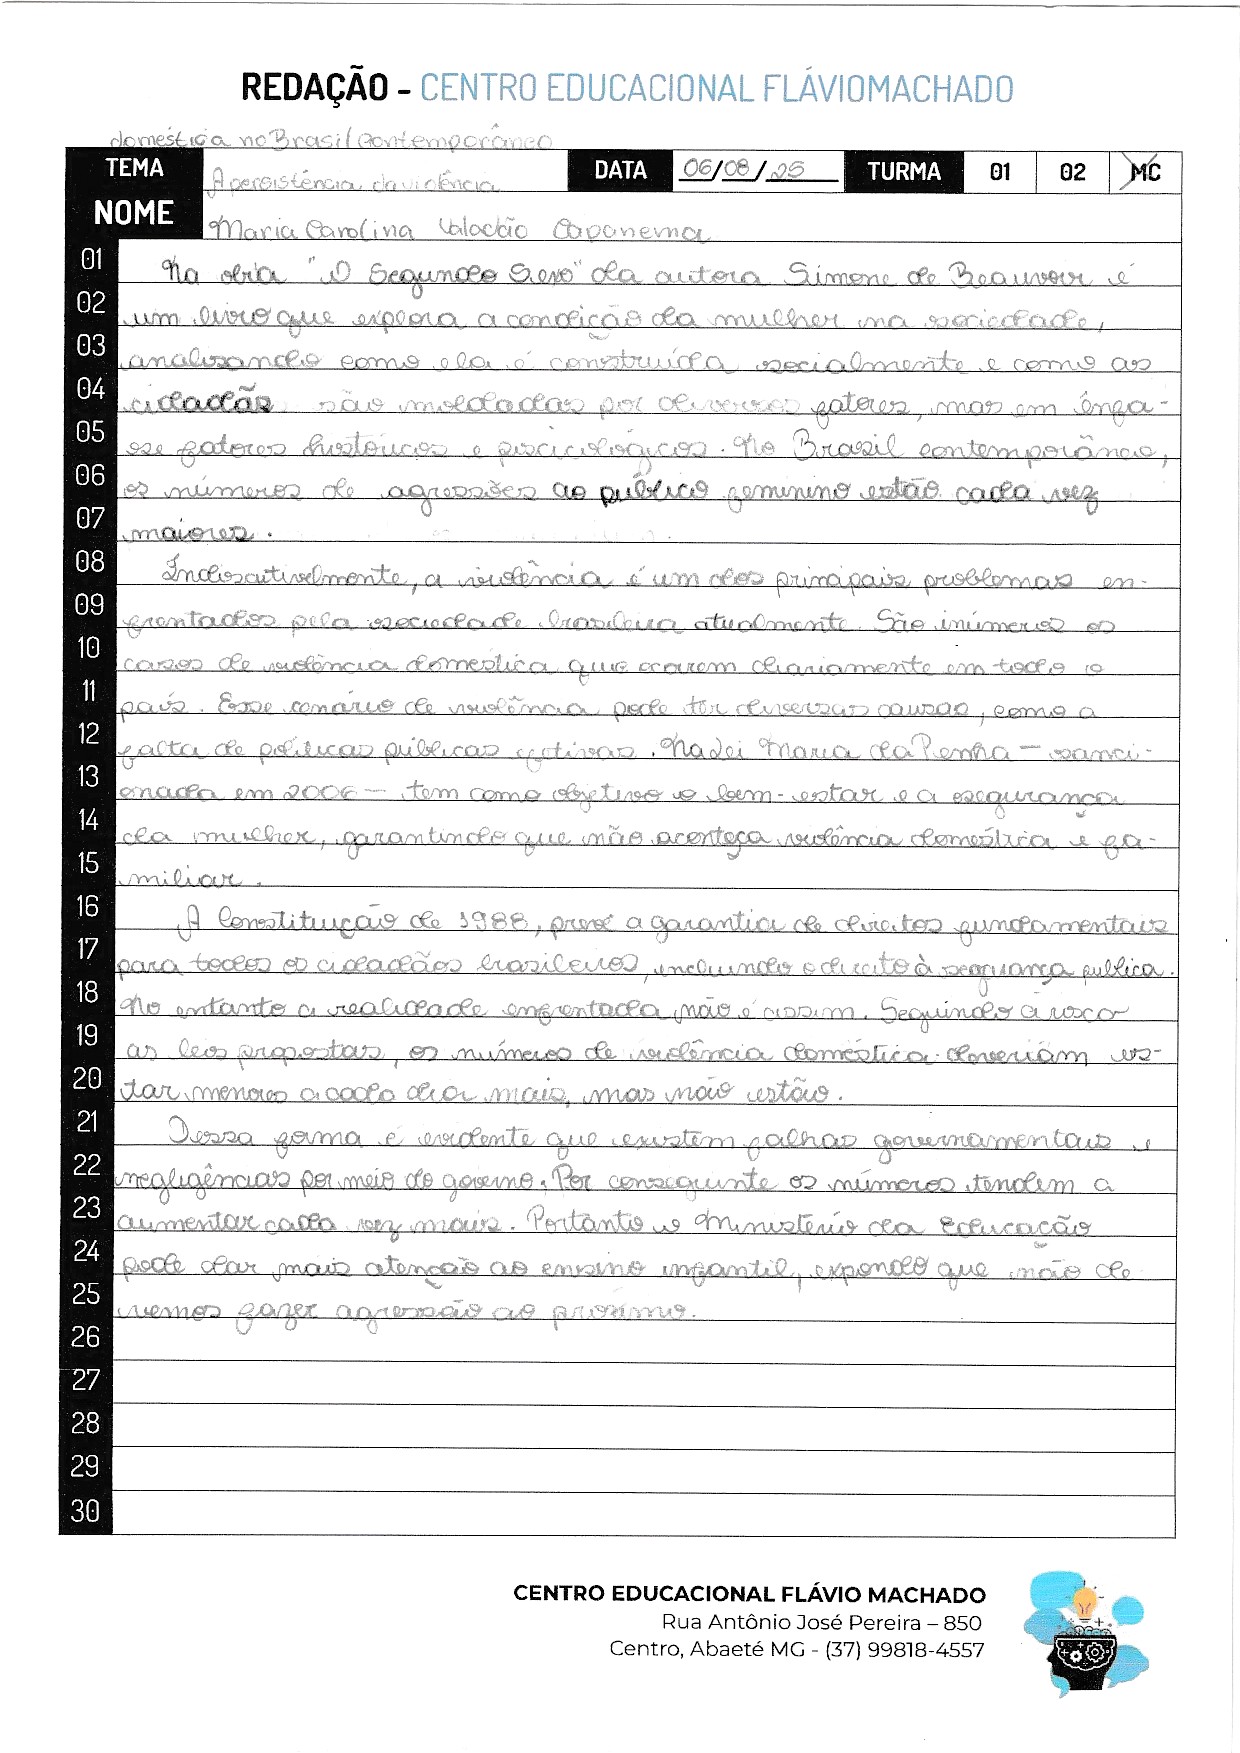 REDAÇÃO - CENTRO EDUCACIONAL FLÁVIOMACHADO
doméstica no Brasil Contemporâneo
TEMA A persistência da violência DATA 06/08/25 TURMA 01 02 MC
NOME Maria Carolina Valadão Capanema
01 Na obra "O Segundo Sexo" da autora Simone de Beauvoir é
02 um livro que explora a condição da mulher na sociedade,
03 analisando como ela é construída socialmente e como as
04 cidadãs são moldadas por diversos fatores, mas em ênfa-
05 se fatores históricos e piscicológicos. No Brasil contemporâneo,
06 os números de agressões ao público feminino estão cada vez
07 maiores.
08 Indiscutivelmente, a violência é um dos principais problemas en-
09 frentados pela sociedade brasileira atualmente. São inúmeros os
10 casos de violência doméstica que ocorrem diariamente em todo o
11 país. Esse cenário de violência pode ter diversas causas, como a
12 falta de políticas públicas efetivas. Na Lei Maria da Penha — sanci-
13 onada em 2006 — tem como objetivo o bem-estar e a segurança
14 da mulher, garantindo que não aconteça violência doméstica e fa-
15 miliar.
16 A Constituição de 1988, prevê a garantia de direitos fundamentais
17 para todos os cidadãos brasileiros, incluindo o direito à segurança publica.
18 No entanto a realidade enfrentada não é assim. Seguindo a risca
19 as leis propostas, os números de violência doméstica deveriam es-
20 tar menores a cada dia mais, mas não estão.
21 Dessa forma é evidente que existem falhas governamentais e
22 negligências por meio do governo. Por conseguinte os números tendem a
23 aumentar cada vez mais. Portanto o Ministério da Educação
24 pode dar mais atenção ao ensino infantil, expondo que não de
25 vemos fazer agressão ao proximo.
26
27
28
29
30
CENTRO EDUCACIONAL FLÁVIO MACHADO
Rua Antônio José Pereira – 850
Centro, Abaeté MG - (37) 99818-4557